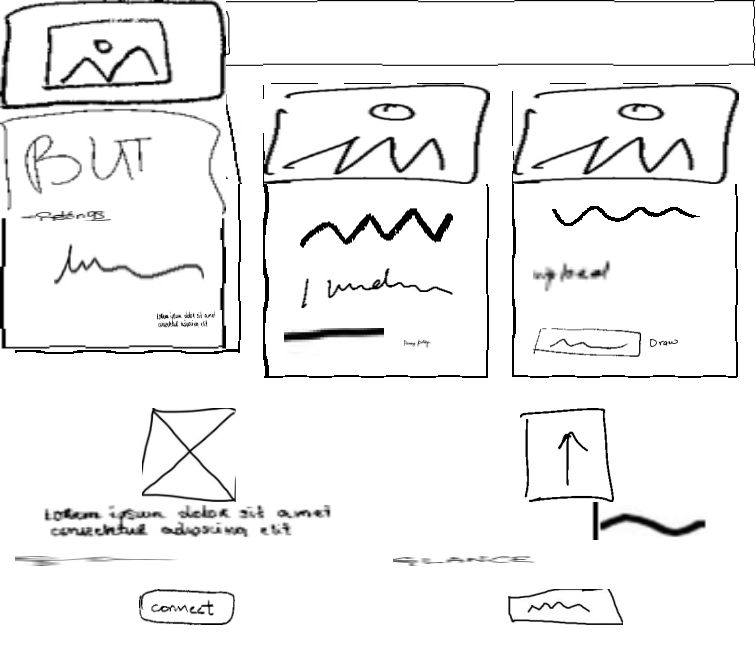 BUT
Lorem ipsum dolor sit amet
consectetur adipiscing elit
upload
Draw
Lorem ipsum dolor sit amet
consectetur adipiscing elit
GLANCE
connect